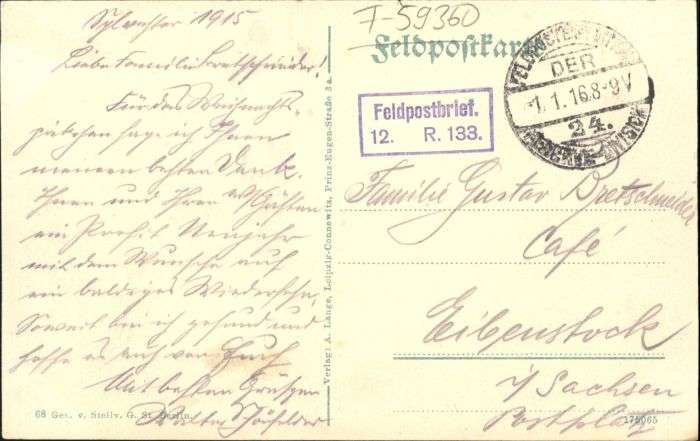 Sylvester 1915
Liebe Familie Bretschneider!
Für das Weihnachts-
päckchen sage ich Ihnen
meinen besten Dank.
Ihnen und Ihren Gästen
ein Prosit Neujahr
mit dem Wunsche auf
ein baldiges Wiedersehn.
Soweit bin ich gesund und
hoffe es auch von Euch
Mit besten Grüssen
Walter
68 Gen. v. Stellv. G. St. Berlin.
Verlag: A. Lange, Leipzig-Connewitz, Prinz-Eugen-Straße 3a.
F-59360
Feldpostkarte
Feldpostbrief.
12. R. 133.
DER
1.1.16.8-9V
24.
RESERVE-DIVISION
Familie Gustav Bretschneider
Café
Eibenstock
i/Sachsen
Postplatz
175065